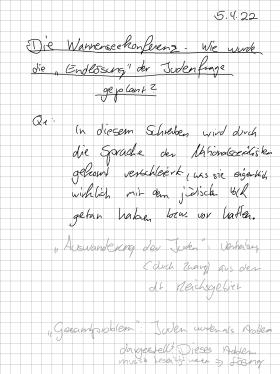 5.4.22
Die Wannseekonferenz - Wie wurde
die „Endlösung" der Judenfrage
geplant?
Q1:
In diesem Schreiben wird durch
die Sprache der Nationalsozialisten
gekonnt verschleiert, was sie eigentlich
wirklich mit dem jüdische Volk
getan haben bzw. vor hatten.
„Auswanderung der Juden":
(durch Zwang) aus dem
dt Reichsgebiet
„Gesamtproblem": Juden
dargestellt Dieses